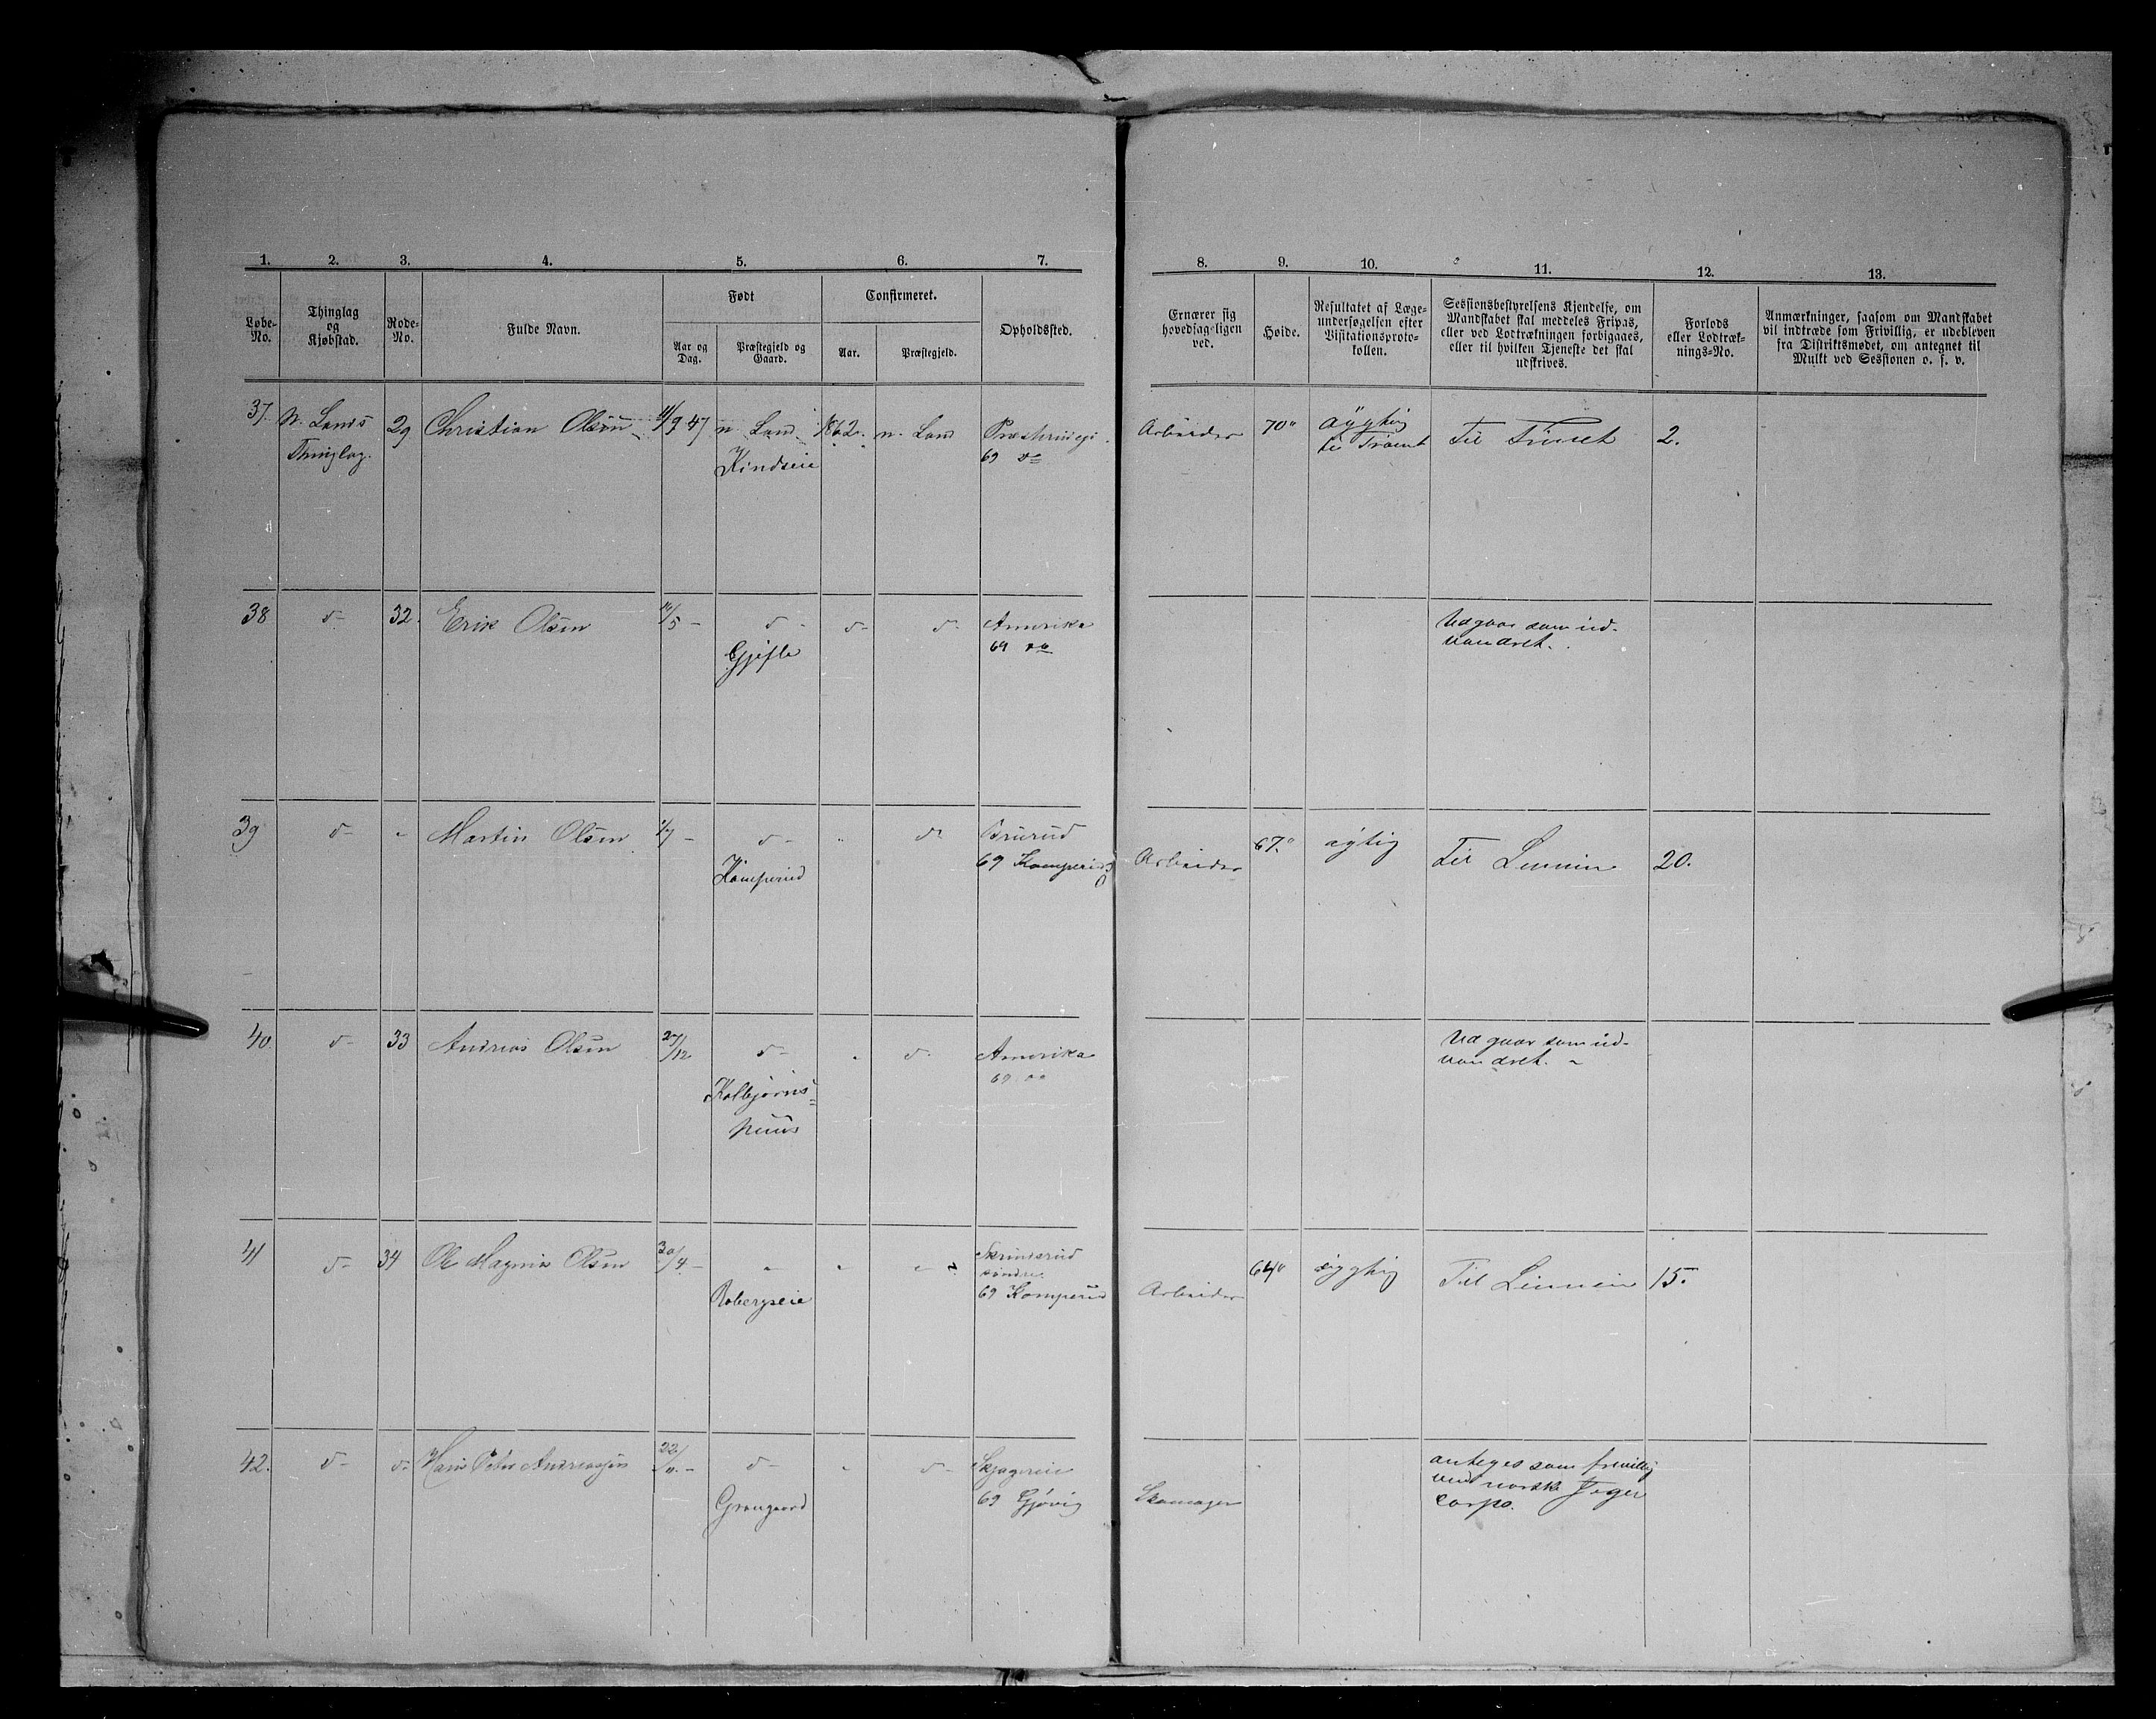 1. 2. 3. 4. 5. 6. 7. 8. 9. 10. 11. 12. 13.
Løbe-No. Thinglag og Kjøbstad. Rode-No. Fulde Navn. Født Confirmeret. Opholdssted.
Aar og Dag. Præstegjeld og Gaard. Aar. Præstegjeld.
Ernærer sig hovedsageligen ved. Høide. Resultatet af Læge-undersøgelsen efter Visitationsproto-kollen. Sessionsbestyrelsens Kjendelse, om Mandskabet skal meddeles Fripas, eller ved Lodtrækningen forbigaaes, eller til hvilken Tjeneste det skal udskrives. Forlods eller Lodtræk-nings-No. Anmærkninger, saasom om Mandskabet vil indtræde som Frivillig, er udebleven fra Distriktsmødet, om antegnet til Mulkt ved Sessionen o. s. v.
37. N. Lands 29 Christian Olsen 11/9 47 n. Land 1862. n. Land
Thinglag. Kindseie 69 do
Arbeider 70" dygtig Til Trainet 2.
til Trainet
38 d- 32. Erik Olsen /5 - d- d- d- Amerika
Gjefle 69 do
Udgaar som ud-
vandret.
39 d- " Martin Olsen /7 - d- " d- Brurud
Kamperud 69 Kamperud
Arbeider 67" dygtig Til Linien 20.
40. d- 33 Andreas Olsen 27/12 d- " d- Amerika
69 do
Kolbjørns=
huus
Udgaar som ud-
vandret. -
41 d- 34 Ole Magnus Olsen 30/4 - " " " Skrinderud
søndre.
Robergseie 69 Kamperud
Arbeider 64" dygtig Til Linien 15.
42. d- d- Hans Peter Andreassen 22/11. - d- " d-
Grangaard 69 Gjøvig
Skomager
antages som frivillig
ved norske Jæger
corps.